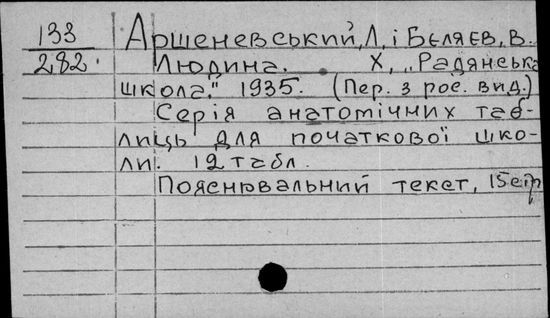 133
282.
Аршеневський, Л, і Бєляєв, В.
Людина. Х, „Радянська
школа." 1935. (Пер. з рос. вид.)
Серія анатомічних таб-
лиць для початкової шко-
ли. 12 табл.
Пояснювальний текст, 15 стр